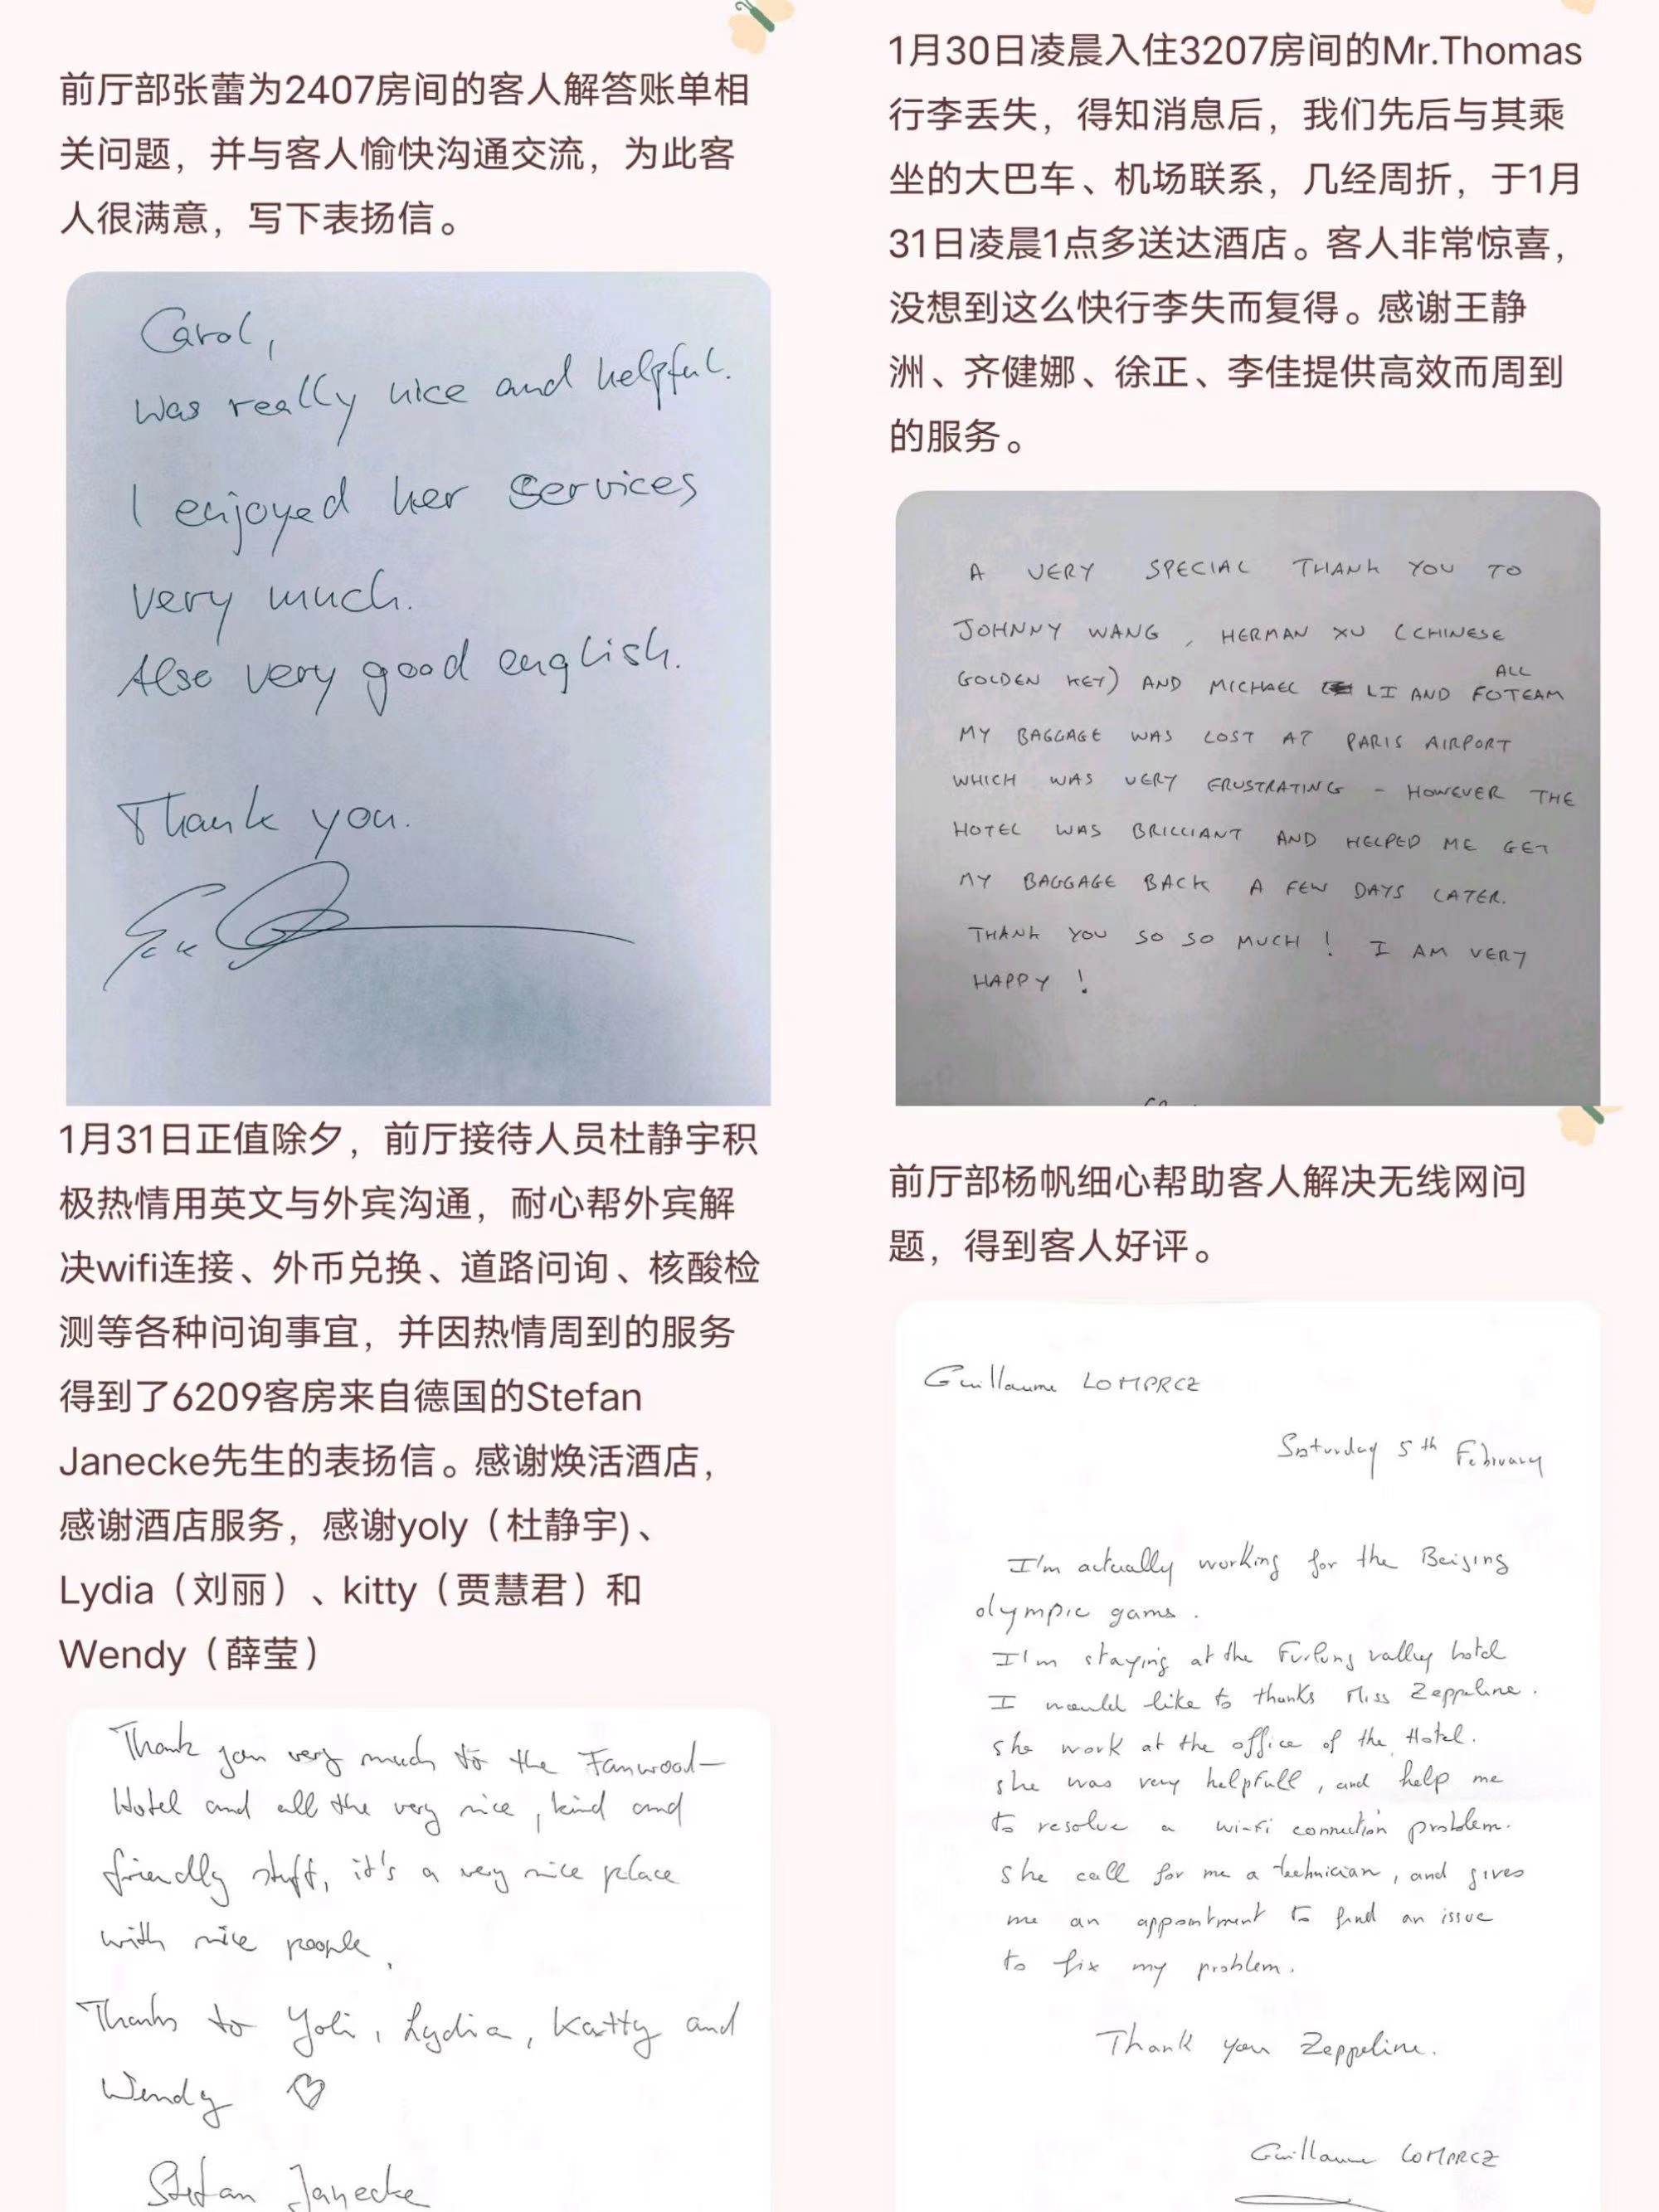 前厅部张蕾为2407房间的客人解答账单相
关问题，并与客人愉快沟通交流，为此客
人很满意，写下表扬信。
Carol,
was really nice and helpful.
I enjoyed her services
very much.
Also very good english.
Thank you.
1月31日正值除夕，前厅接待人员杜静宇积
极热情用英文与外宾沟通，耐心帮外宾解
决wifi连接、外币兑换、道路问询、核酸检
测等各种问询事宜，并因热情周到的服务
得到了6209客房来自德国的Stefan
Janecke先生的表扬信。感谢焕活酒店，
感谢酒店服务，感谢yoly（杜静宇)、
Lydia（刘丽）、kitty（贾慧君）和
Wendy（薛莹）
Thank you very much to the Fanwood-
Hotel and all the very nice, kind and
friendly stuff, it's a very nice place
with nice people.
Thanks to Yoli, Lydia, Kattty and
Wendy
Stefan Janecke
1月30日凌晨入住3207房间的Mr.Thomas
行李丢失，得知消息后，我们先后与其乘
坐的大巴车、机场联系，几经周折，于1月
31日凌晨1点多送达酒店。客人非常惊喜，
没想到这么快行李失而复得。感谢王静
洲、齐健娜、徐正、李佳提供高效而周到
的服务。
A VERY SPECIAL THANK YOU TO
JOHNNY WANG, HERMAN XU (CHINESE
GOLDEN KEY) AND MICHAEL LI AND ALL FOTEAM
MY BAGGAGE WAS LOST AT PARIS AIRPORT
WHICH WAS VERY FRUSTRATING - HOWEVER THE
HOTEL WAS BRILLIANT AND HELPED ME GET
MY BAGGAGE BACK A FEW DAYS LATER.
THANK YOU SO SO MUCH! I AM VERY
HAPPY!
前厅部杨帆细心帮助客人解决无线网问
题，得到客人好评。
Guillaume LOMPREZ
Saturday 5th February
I'm actually working for the Beijing
olympic gams.
I'm staying at the Furlong valley hotel
I would like to thanks Miss Zeppeline.
she work at the office of the Hotel.
she was very helpfull, and help me
to resolve a wi-fi connection problem.
she call for me a technician, and gives
me an appointment to find an issue
to fix my problem.
Thank you Zeppeline.
Guillaume LOMPREZ